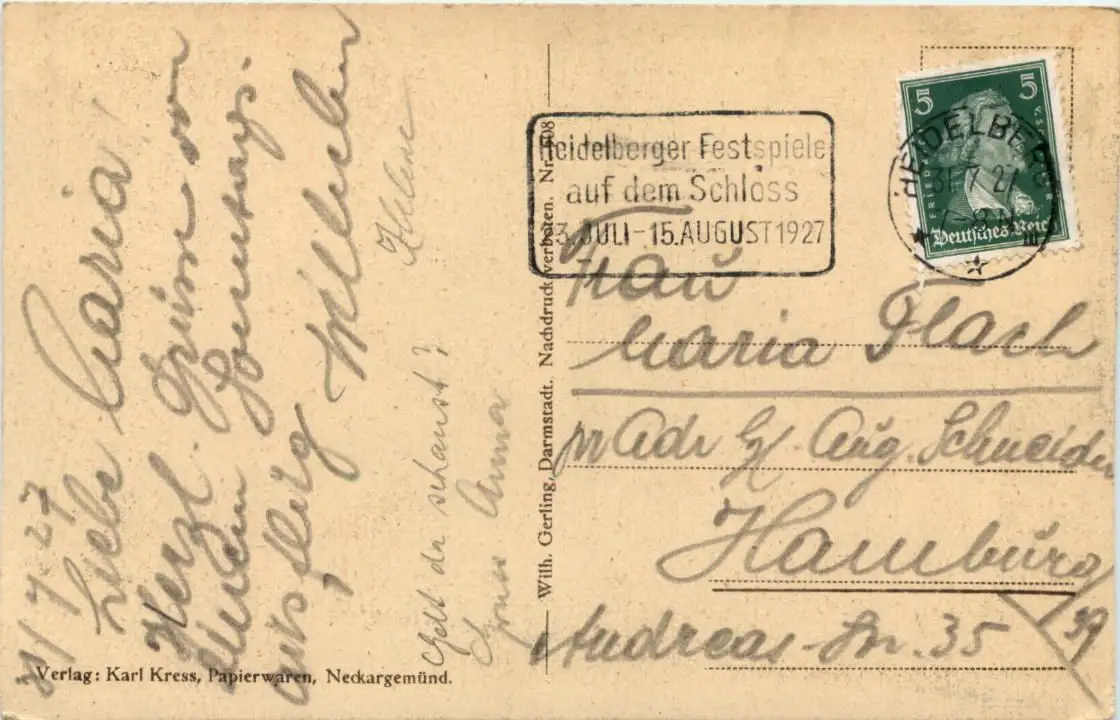 31/7 27
Liebe Maria!
Herzl. Grüsse von
einem Sonntags-
ausflug
Helene
Gelt da schaust?
Anna
Verlag: Karl Kress, Papierwaren, Neckargemünd.
Wilh. Gerling, Darmstadt. Nachdruck verboten. Nr.
Heidelberger Festspiele
auf dem Schloss
JULI-15.AUGUST 1927
5 5
FRIED
Deutsches Reich
HEIDELBERG
31 7 27
7-8 N
Frau
Maria Flach
pr Adr Aug. Schneider
Hamburg
39
Andreas-Str. 35